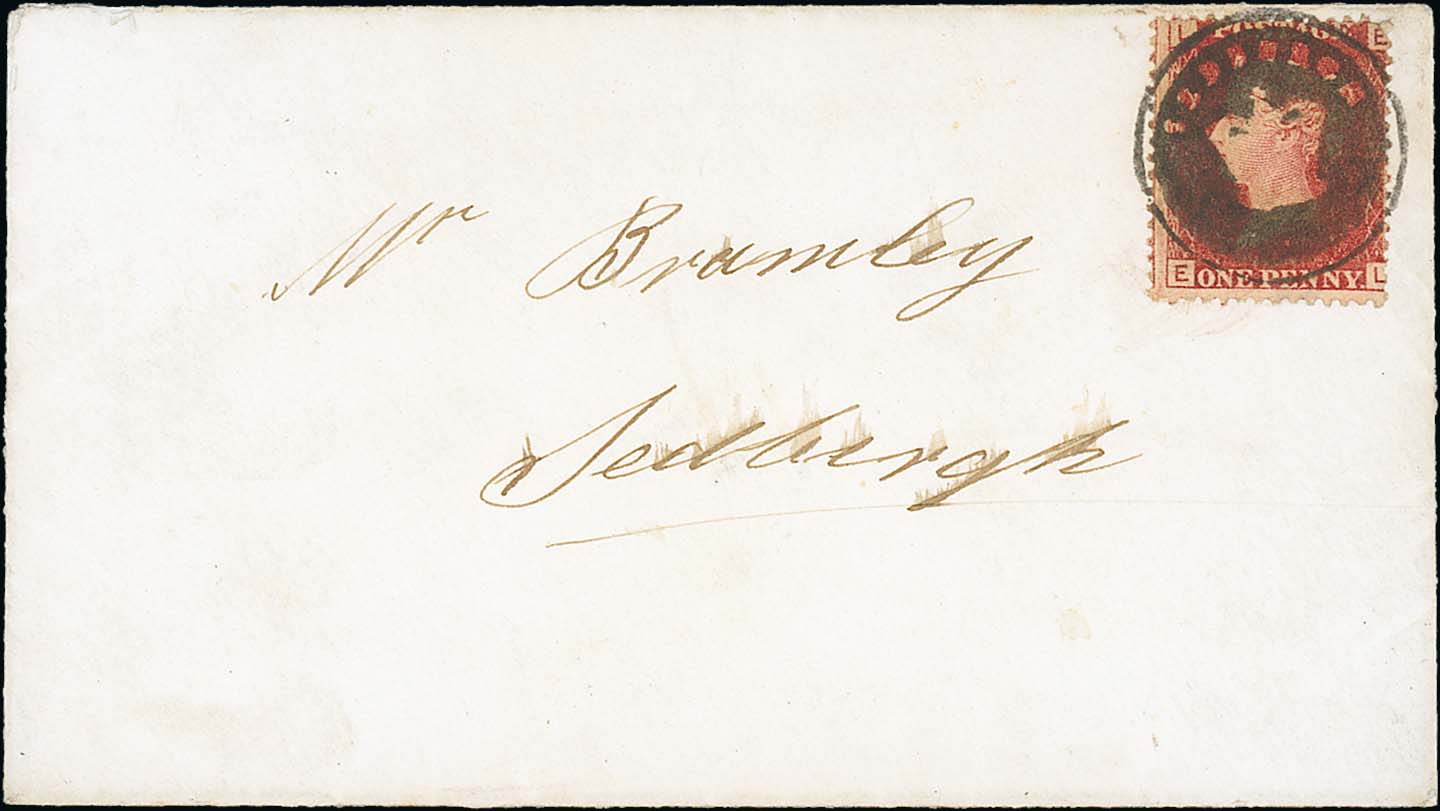 Mr Bramley
Sedbergh
POSTAGE
E
SEDBURGH
E ONE PENNY. L